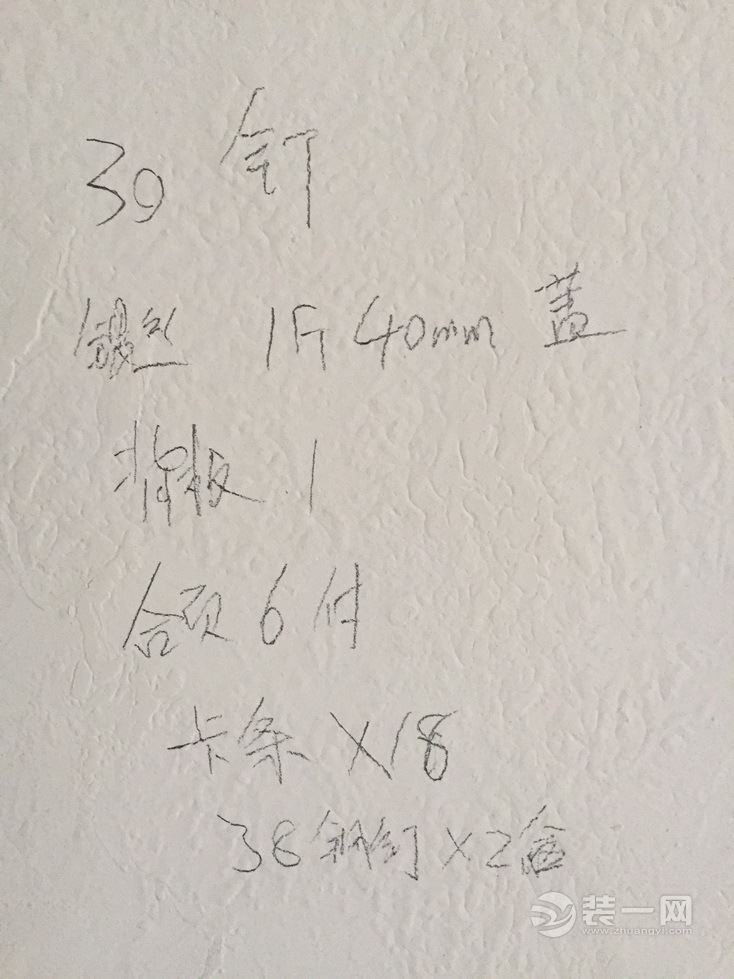 30 钉
螺丝 1斤 40mm 盖
棉板 1
合页 6 付
卡条 X18
38钢钉X2盒
装一网
www.zhuangyi.com